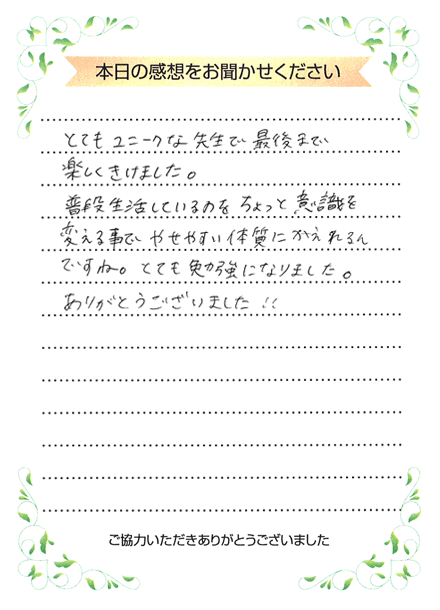 本日の感想をお聞かせください
とてもユニークな先生で最後まで
楽しくきけました。
普段生活しているのをちょっと意識を
変える事でやせやすい体質にかえれるん
ですね。とても勉強になりました。
ありがとうございました!!
ご協力いただきありがとうございました